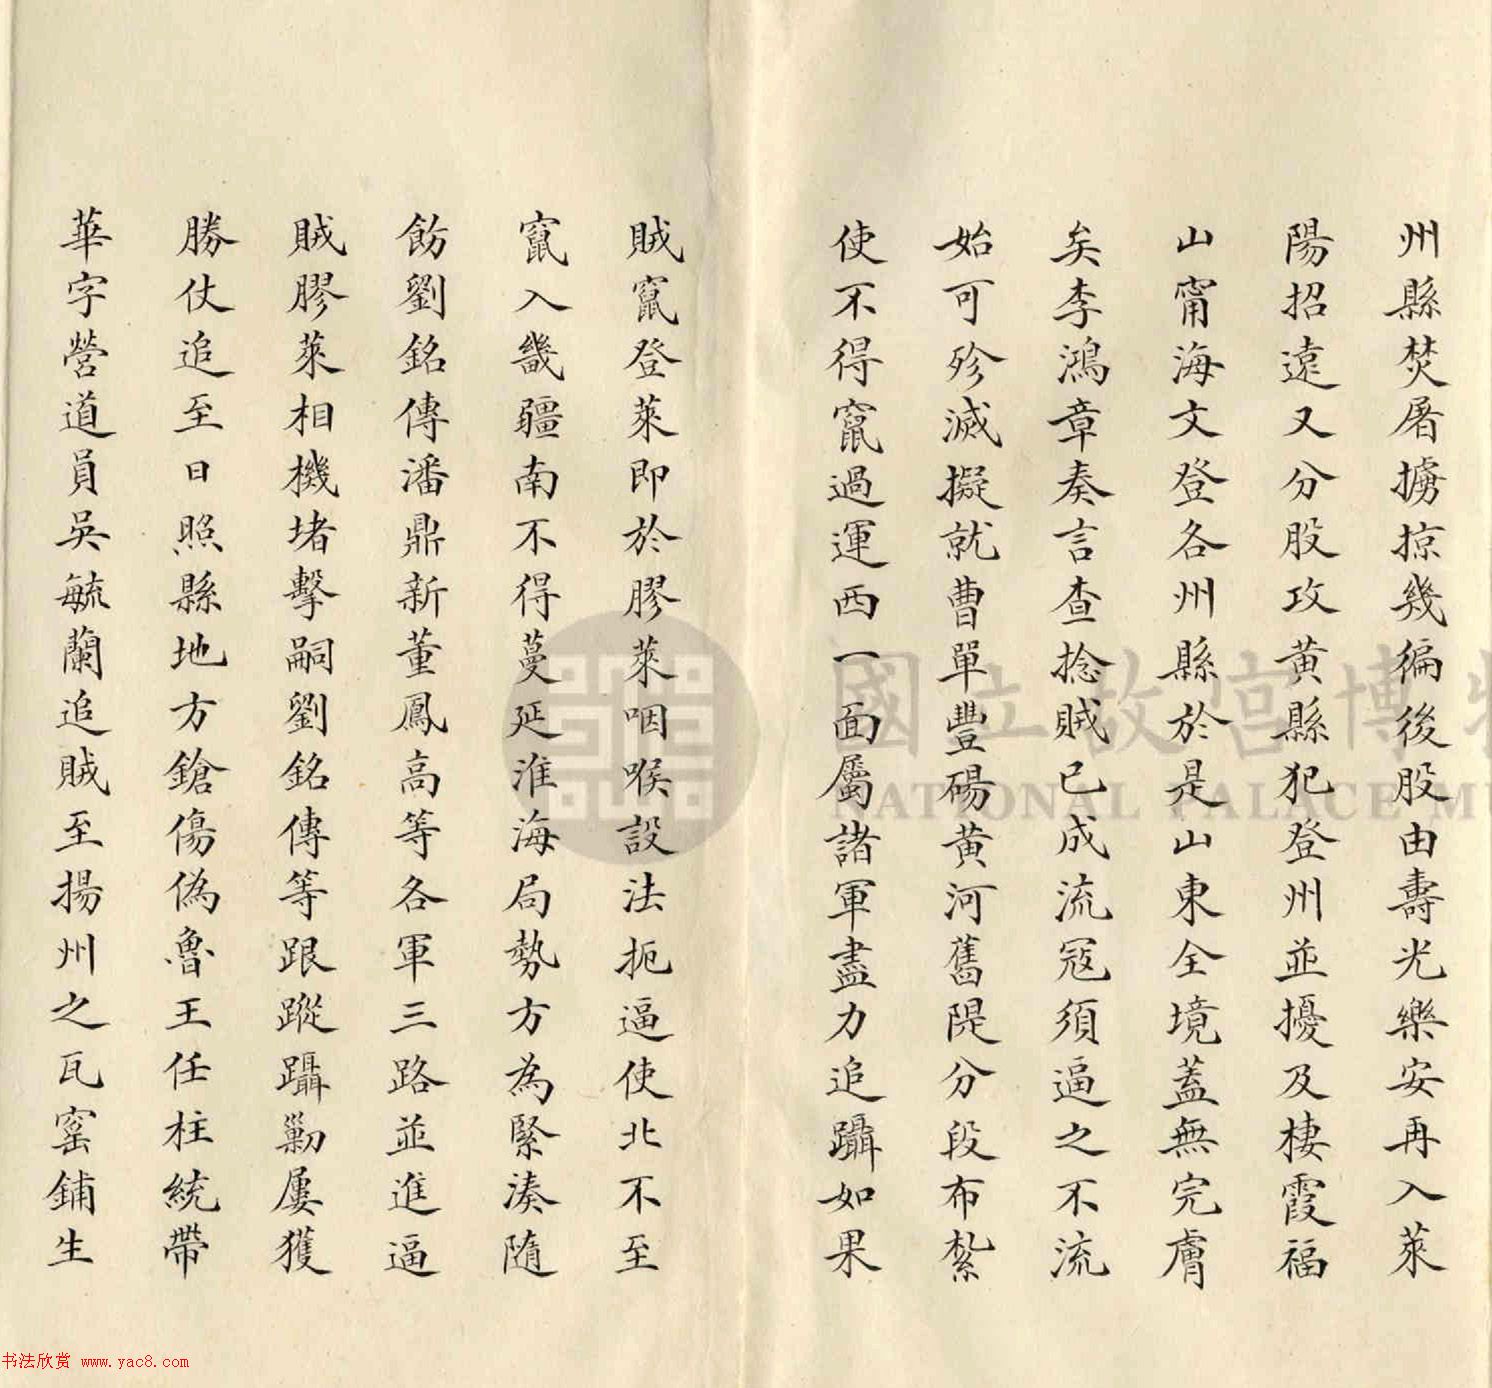 州縣焚屠擄掠幾徧後股由壽光樂安再入萊
陽招遠又分股攻黃縣犯登州並擾及棲霞福
山甯海文登各州縣於是山東全境蓋無完膚
矣李鴻章奏言查捻賊已成流寇須逼之不流
始可殄滅擬就曹單豐碭黃河舊隄分段布紮
使不得竄過運西一面屬諸軍盡力追躡如果
賊竄登萊即於膠萊咽喉設法扼逼使北不至
竄入畿疆南不得蔓延淮海局勢方為緊湊隨
飭劉銘傳潘鼎新董鳳高等各軍三路並進逼
賊膠萊相機堵擊嗣劉銘傳等跟蹤躡勦屢獲
勝仗追至日照縣地方鎗傷偽魯王任柱統帶
華字營道員吳毓蘭追賊至揚州之瓦窰鋪生
國立故宮博物
NATIONAL PALACE MU
书法欣赏 www.yac8.com